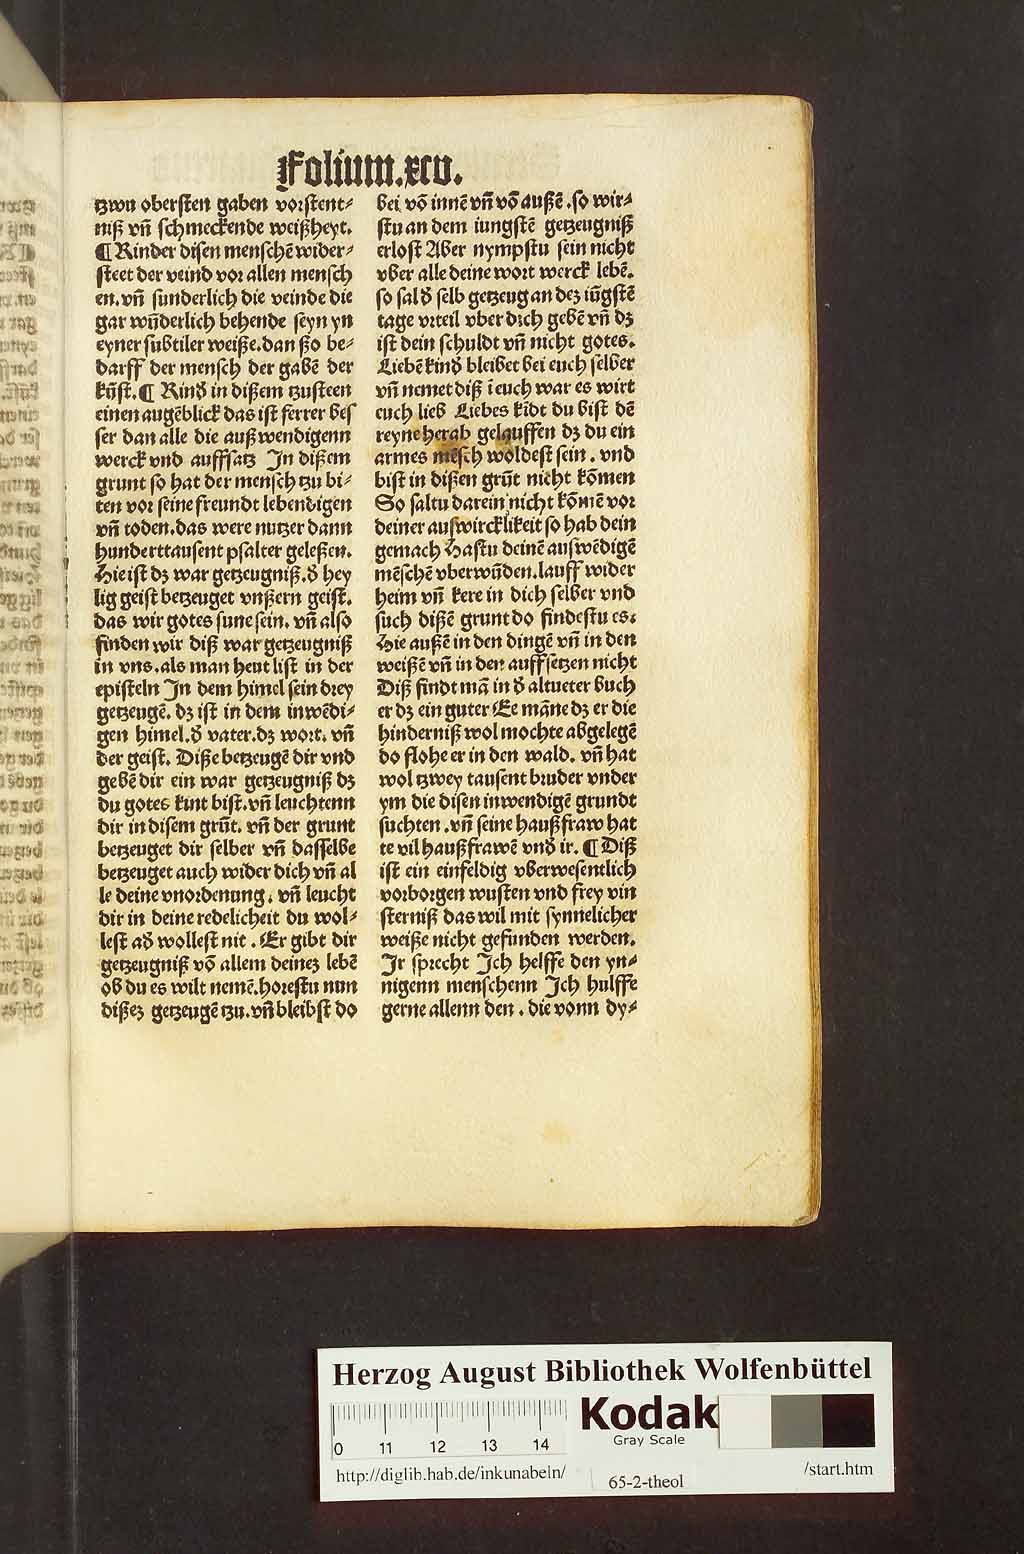 Folium.xcv.
tzwu obersten gaben vorstent⸗
niß vñ schmeckende weißheyt.
¶ Kinder disen menschē wider⸗
steet der veind vor allen mensch
en. vñ sunderlich die veinde die
gar wūderlich behende seyn yn
eyner subtiler weiße. dan ßo be⸗
darff der mensch der gabē der
kūst. ¶ Kind̕ in dißem tzusteen
einen augēblick das ist ferrer bes
ser dan alle die außwendigenn
werck vnd auffsatz In dißem
grunt so hat der mensch tzu bi⸗
ten vor seine freundt lebendigen
vñ toden. das were nutzer dann
hunderttausent psalter geleßen.
Hie ist dz war getzeugniß. d̕ hey
lig geist betzeuget vnßern geist.
das wir gotes sune sein. vñ also
finden wir diß war getzeugniß
in vns. als man heut list in der
episteln In dem himel sein drey
getzeugē. dz ist in dem inwēdi⸗
gen himel. d̕ vater. dz wort. vñ
der geist. Diße betzeugē dir vnd
gebē dir ein war getzeugniß dz
du gotes kint bist. vñ leuchtenn
dir in disem grūt. vñ der grunt
betzeuget dir selber vñ dasselbe
betzeuget auch wider dich vñ al
le deine vnordenung. vñ leucht
dir in deine redelicheit du wol⸗
lest ad̕ wollest nit. Er gibt dir
getzeugniß vō allem deinez lebē
ob du es wilt nemē. horestu nun
dißez getzeugē tzu. vñ bleibst do
bei vō innē vñ vō außē. so wir⸗
stu an dem iungstē getzeugniß
erlost Aber nympstu sein nicht
vber alle deine wort werck lebē.
so sal d̕ selb getzeug an dez iūgstē
tage vrteil vber dich gebē vñ dz
ist dein schuldt vñ nicht gotes.
Liebē kind̕ bleibet bei euch selber
vñ nemet diß ī euch war es wirt
euch lieb Liebes kīdt du bist dē
reyne herab gelauffen dz du ein
armes mēsch woldest sein. vnd
bist in dißen grūt nicht kōmen
So saltu darein nicht kōmē vor
deiner auswircklikeit so hab dein
gemach Hastu deinē auswēdigē
mēschē vberwūden. lauff wider
heim vñ kere in dich selber vnd
such dißē grunt do findestu es.
Hie außē in den dingē vñ in den
weißē vñ in den auffsetzen nicht
Diß findt mā in d̕ altueter buch
er dz ein guter Ee māne dz er die
hinderniß wol mochte abgelegē
do flohe er in den wald. vñ hat
wol tzwey tausent bruder vnder
ym die disen inwendigē grundt
suchten. vñ seine haußfraw hat
te vil haußfrawē vnd̕ ir. ¶ Diß
ist ein einfeldig vberwesentlich
vorborgen wusten vnd frey vin
sterniß das wil mit synnelicher
weiße nicht gefunden werden.
Ir sprecht Ich helffe den yn⸗
nigenn menschenn Ich hulffe
gerne allenn den. die vonn dy⸗
Herzog August Bibliothek Wolfenbüttel
0 11 12 13 14
Kodak
Gray Scale
http://diglib.hab.de/inkunabeln/ 65-2-theol /start.htm